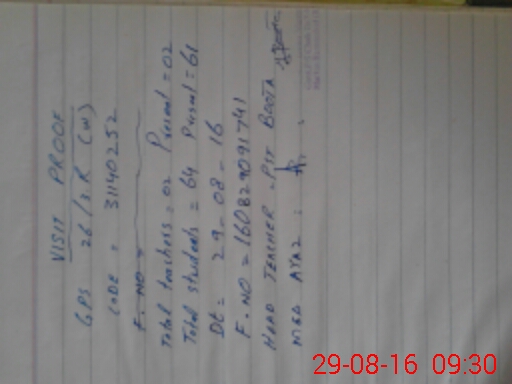 VISIT PROOF
GPS 26/3R (W)
CODE = 31140252
F. NO =
Total teachers = 02 Present = 02
Total students = 64 Present = 61
Dt = 29-08-16
F. NO = 16082909 1741
HEAD TEACHER - PST BOOTA
M&D AYAZ :
29-08-16 09:30